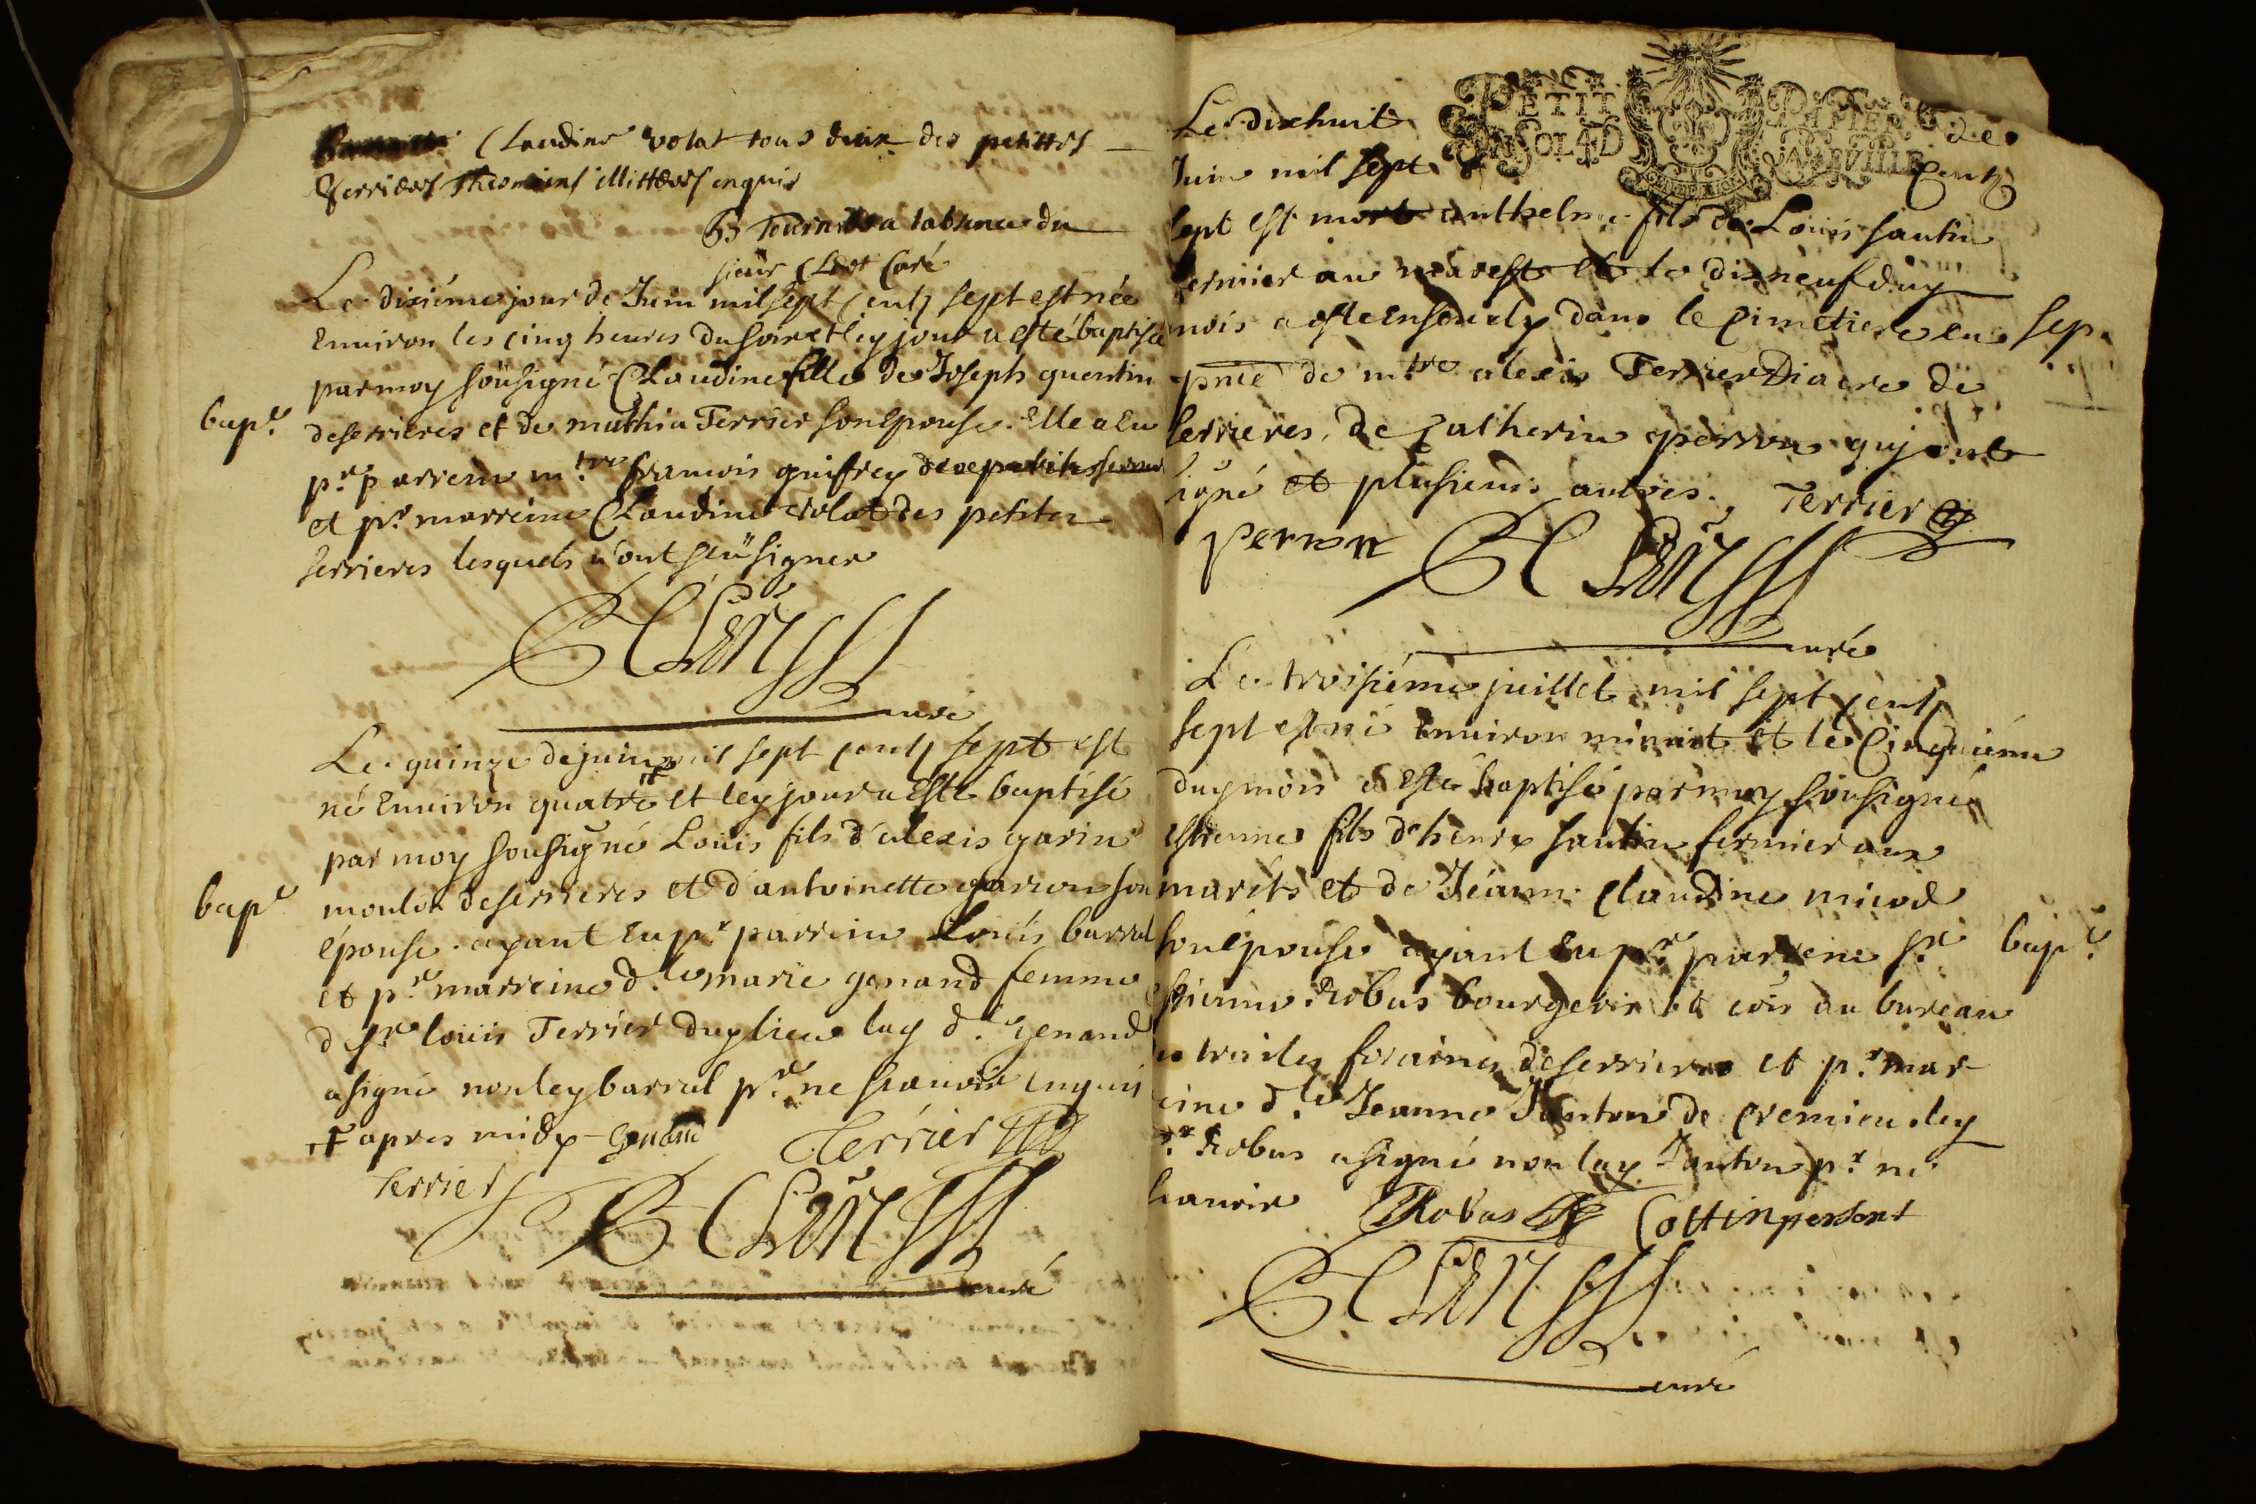 Claudine volat tous deux des petittes
Serrieres Thesmoins illitteres enquis
Tournu a labsence du
sieur Clert Curé
Le dixiéme jour de Juin mil sept cents sept est née
Environ les cinq heures du soir et ley jour a esté baptisée
par moy soûsigné Claudine fille de Joseph quentin
bap.e
deserrieres et de mathia Terrier son épouse. Elle a Eu
p.r parrein m.tre francois guifrey
et p.r marreine Claudine volat des petites
serrieres lesquels n'ont sçû signer
curé
Le quinze de juin mil sept cents sept est
né Environ quatre et ley jour a Esté baptisé
par moy sousigné Louis fils d'alexis garin
bap.e
moulin deserrieres et d'antoinette garion son
épouse. ayant Eu p.r parrein Louis barral
et p.r marreine d.le marie genand femme
de s.r louis Terrier duy lieu lay d.e genand
a signé non ley barral p.r ne scavoir enquis
apres midy genand Terrier
Terrier
curé
Le dixhuit de
PETIT PAPIER
SOL 4D VILLE
Juin mil sept Cents
sept est mort anthelme fils de Louis santin
fermier au marest et le dixneuf duy
mois a esté Ensevely dans le Cimetiere en
sep.
pnce de m.tre alexis Terrier Diacre de
serrieres, de Catherin perron quj ont
signé et plusieurs autres. Terrier
perron
curé
Le troisiéme juillet mil sept cents
sept est né Environ minuit et le Cinquiéme
duy mois a esté baptisé par moy sousigné
estienne fils d'henry santin fermier aux
marets et de Jeanne Claudine micod
son épouse ayant Eu p.r parrein s.r
bap.e
estienne Robus bourgeois et cois au bureau
traites foraines deserrieres et p.r mar-
reine d.le Jeanne Janton de Cremieu ley
s.r Robus a signé non lay Janton p.r ne
scavoir Robus Cottin present
curé